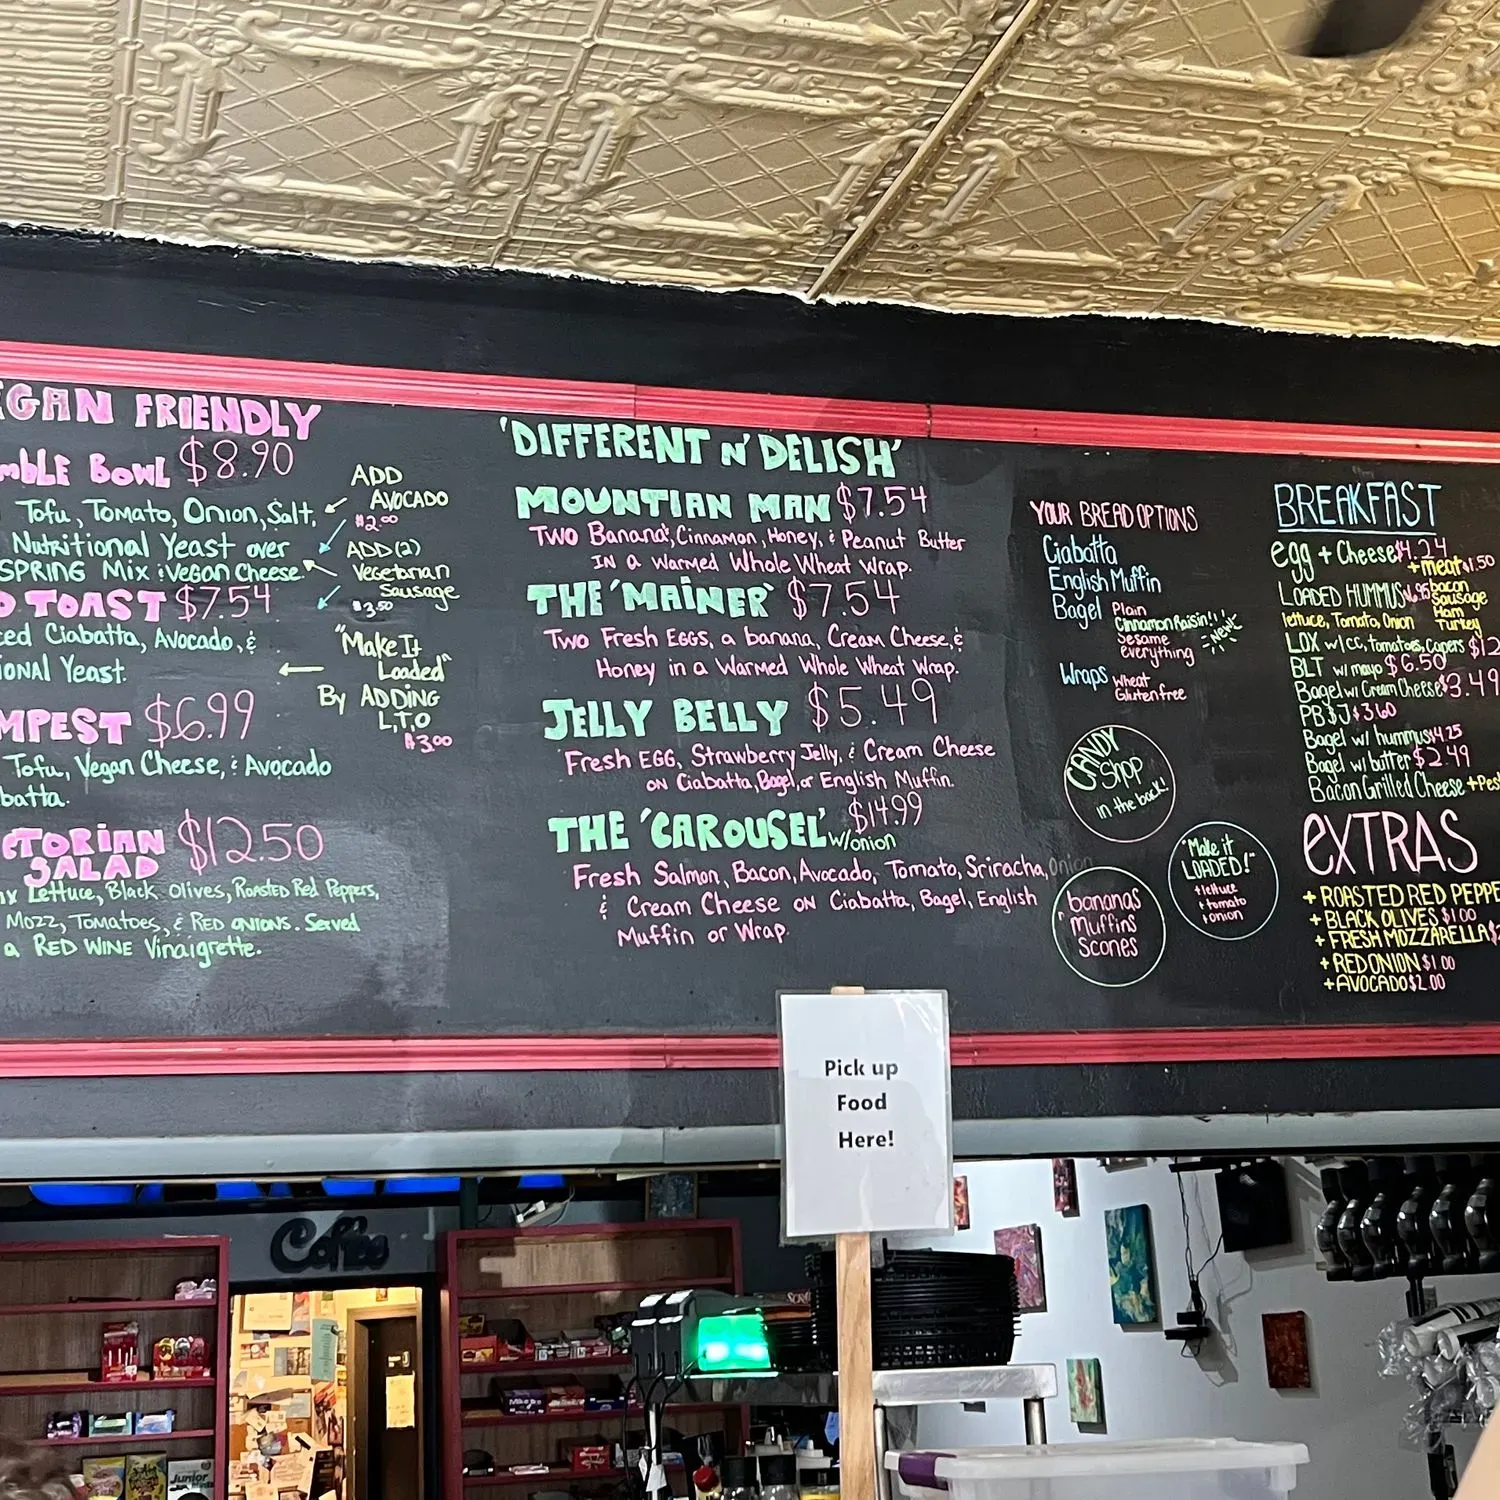 EGAN FRIENDLY
mBLE BOWL $8.90
Tofu, Tomato, Onion, Salt,
Nutritional Yeast over
SPRING Mix & Vegan Cheese.
ADD
AVOCADO
$2.00
ADD (2)
Vegetarian
Sausage
$3.50
O TOAST $7.54
ced Ciabatta, Avocado, &
ional Yeast.
"Make It
Loaded"
By ADDING
L,T,O
$3.00
MPEST $6.99
Tofu, Vegan Cheese, & Avocado
batta.
CTORIAN $12.50
SALAD
ix Lettuce, Black Olives, Roasted Red Peppers,
Mozz, Tomatoes, & RED ONIONS. Served
a RED WINE Vinaigrette.
'DIFFERENT N' DELISH'
MOUNTIAN MAN $7.54
Two Banana's, Cinnamon, Honey, & Peanut Butter
IN a Warmed Whole Wheat Wrap.
THE 'MAINER' $7.54
Two Fresh EGGS, a banana, Cream Cheese, &
Honey in a Warmed Whole Wheat Wrap.
JELLY BELLY $5.49
Fresh EGG, Strawberry Jelly, & Cream Cheese
on Ciabatta, Bagel, or English Muffin.
THE 'CAROUSEL' w/onion $14.99
Fresh Salmon, Bacon, Avocado, Tomato, Sriracha, Onion
& Cream Cheese on Ciabatta, Bagel, English
Muffin or Wrap.
YOUR BREAD OPTIONS
Ciabatta
English Muffin
Bagel Plain
Cinnamon Raisin!! NEW!
Sesame
everything
Wraps Wheat
Gluten free
CANDY
Shop
in the back!
"Make it
LOADED!"
+ lettuce
+ tomato
+ onion
bananas
Muffins
Scones
BREAKFAST
egg + Cheese $4.24
+ meat $1.50
bacon
Sausage
Ham
Turkey
LOADED HUMMUS $6.95
lettuce, Tomato, Onion
LOX w/cc, Tomatoes, Capers $12
BLT w/ mayo $6.50
Bagel w/ Cream Cheese $3.49
PB & J $3.60
Bagel w/ hummus $4.25
Bagel w/ butter $2.49
Bacon Grilled Cheese + Pes
EXTRAS
+ ROASTED RED PEPPE
+ BLACK OLIVES $1.00
+ FRESH MOZZARELLA $2
+ RED ONION $1.00
+ AVOCADO $2.00
Pick up
Food
Here!
Coffee
Junior